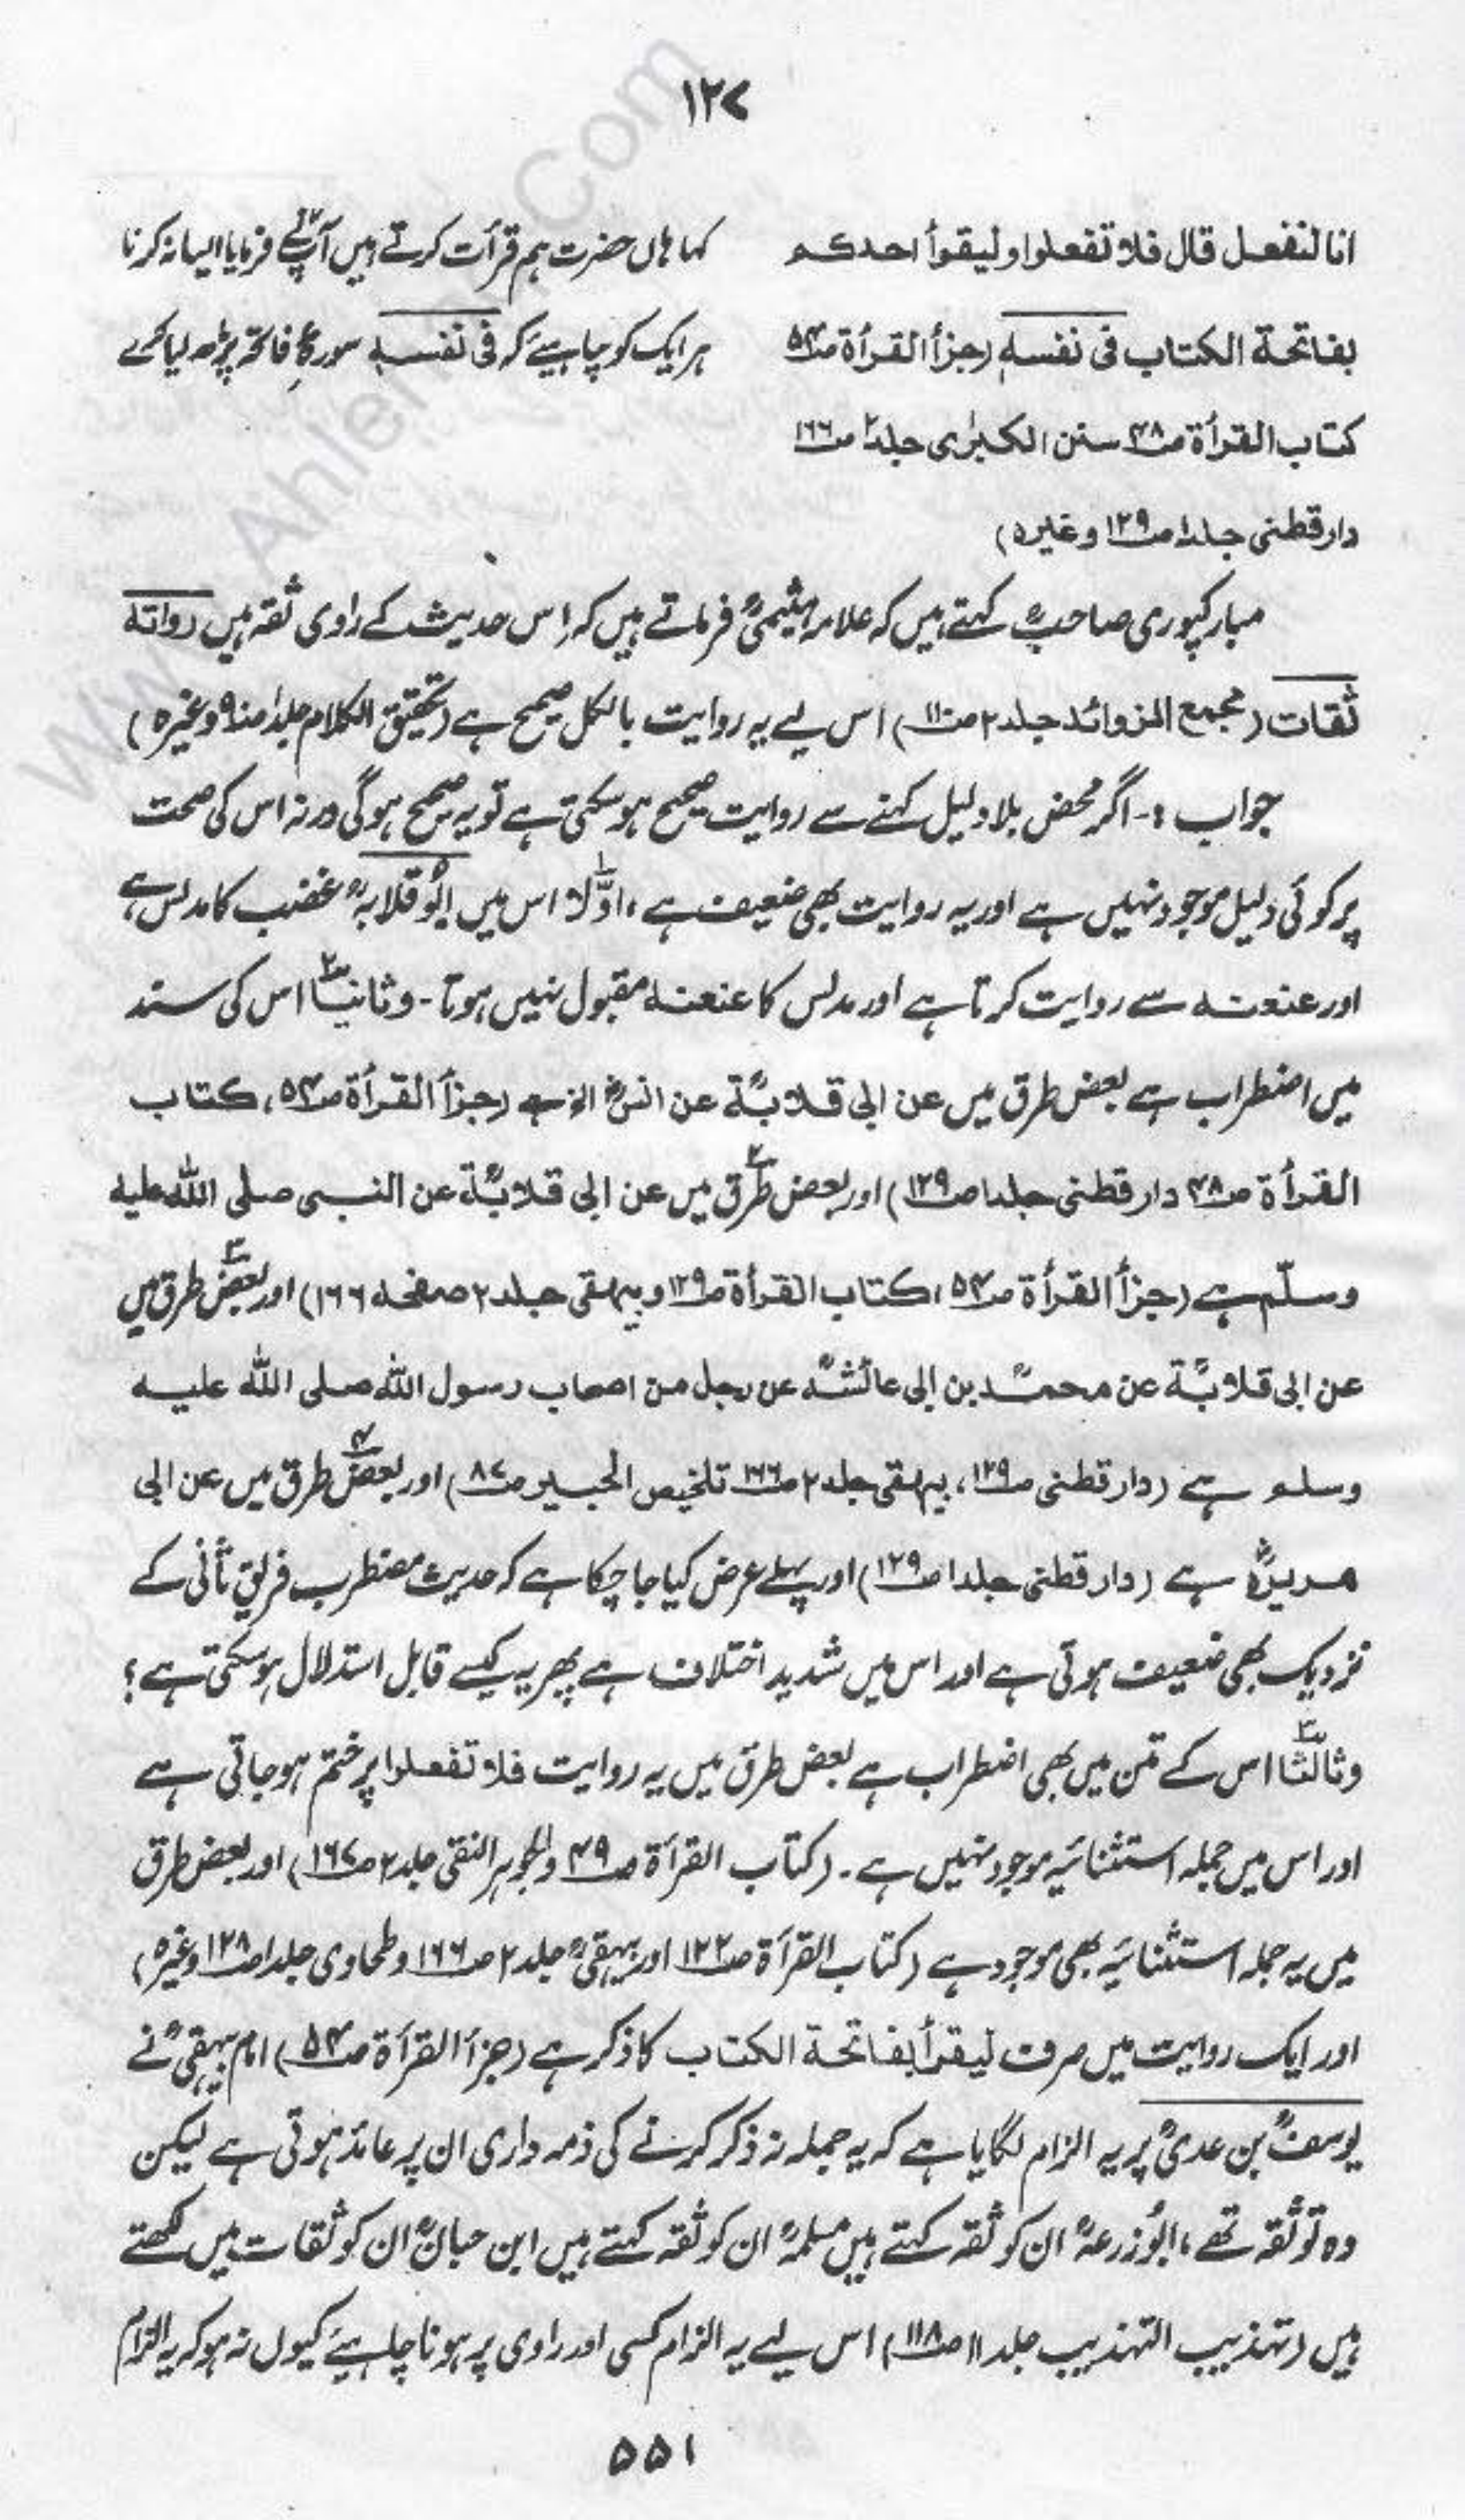 ۱۲۷
انا لنفعل قال فلا تفعلوا وليقرأ احدكم
بفاتحة الكتاب فى نفسه (جزأ القرأة ص۵۴
كتاب القرأة ص۴۸ سنن الكبرٰى جلد۲ ص۱۶۶
دارقطنى جلد۱ ص۱۲۹ وغيره)
کہا ہاں حضرت ہم قرأت کرتے ہیں آپؐ نے فرمایا ایسا نہ کرنا
ہر ایک کو چاہیئے کہ فی نفسہٖ سورۂ فاتحہ پڑھ لیا کرے
مبارکپوری صاحبؒ کہتے ہیں کہ علامہ ہیثمیؒ فرماتے ہیں کہ اِس حدیث کے راوی ثقہ ہیں رواته
ثقات (مجمع الزوائد جلد ۲ ص۱۱۰) اس لیے یہ روایت بالکل صحیح ہے (تحقیق الکلام جلد۱ ص۹۰ وغیرہ)
جواب :- اگر محض بلا دلیل کہنے سے روایت صحیح ہو سکتی ہے تو یہ صحیح ہوگی ورنہ اس کی صحت
پر کوئی دلیل موجود نہیں ہے اور یہ روایت بھی ضعیف ہے، اوّلاً۱ اس میں ابوُ قلابہؒ غضب کا مدلس ہے
اور عنعنہ سے روایت کرتا ہے اور مدلس کا عنعنہ مقبول نہیں ہوتا - وثانیاً۲ اس کی سند
میں اضطراب ہے بعض طرق میں عن ابی قلابۃؒ عن انسؓ الخ ہے (جزأ القرأة ص۵۴، كتاب
القرأة ص۴۸ دارقطنى جلد۱ ص۱۲۹) اور بعض۲ طرق میں عن ابی قلابۃؒ عن النبى صلى الله عليه
وسلّم ہے (جزأ القرأة ص۵۴، كتاب القرأة ص۱۲۹ وبیہقی جلد ۲ صفحہ ۱۶۶) اور بعض۳ طرق میں
عن ابی قلابۃؒ عن محمدؒ بن ابی عائشہؒ عن رجل من اصحاب رسول الله صلى الله عليه
وسلم ہے (دارقطنی ص۱۲۹، بیہقی جلد ۲ ص۱۶۶ تلخیص الحبیر ص۸۷) اور بعض۴ طرق میں عن ابی
ھریرةؓ ہے (دارقطنی جلد۱ ص۱۲۹) اور پہلے عرض کیا جا چکا ہے کہ حدیث مضطرب فریق ثانی کے
نزدیک بھی ضعیف ہوتی ہے اور اس میں شدید اختلاف ہے پھر یہ کیسے قابل استدلال ہو سکتی ہے؟
وثالثاً۳ اس کے متن میں بھی اضطراب ہے بعض طرق میں یہ روایت فلا تفعلوا پر ختم ہو جاتی ہے
اور اس میں جملہ استثنائیہ موجود نہیں ہے - (کتاب القرأة ص۴۹ والجوہر النقی جلد ۲ ص۱۶۷) اور بعض طرق
میں یہ جملہ استثنائیہ بھی موجود ہے (کتاب القرأة ص۱۲۲ اور بیہقیؒ جلد ۲ ص۱۶۶ وطحاوی جلد۱ ص۱۲۸ وغیرہ)
اور ایک روایت میں صرف ليقرأ بفاتحة الكتاب کا ذکر ہے (جزأ القرأة ص۵۴) امام بیہقیؒ نے
یوسفؒ بن عدیؒ پر یہ الزام لگایا ہے کہ یہ جملہ نہ ذکر کرنے کی ذمہ داری ان پر عائد ہوتی ہے لیکن
وہ تو ثقہ تھے، ابوُ زرعہؒ ان کو ثقہ کہتے ہیں مسلمہؒ ان کو ثقہ کہتے ہیں ابن حبانؒ ان کو ثقات میں لکھتے
ہیں (تہذیب التہذیب جلد ۱۱ ص۴۱۸) اس لیے یہ الزام کسی اور راوی پر ہونا چاہیئے کیوں نہ ہو کہ یہ الزام
۵۵۱